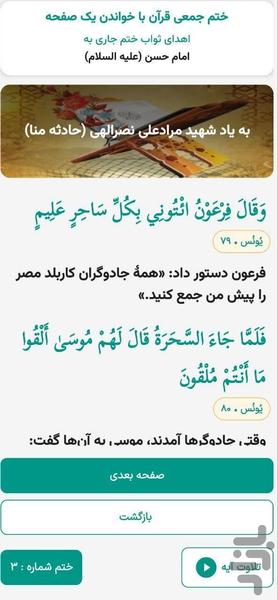 ختم جمعی قرآن با خواندن یک صفحه
اهدای ثواب ختم جاری به
امام حسن (علیه السلام)
به یاد شهید مرادعلی نصرالهی (حادثه منا)
وَقَالَ فِرْعَوْنُ ائْتُونِي بِكُلِّ سَاحِرٍ عَلِيمٍ
یُونُس • ۷۹
فرعون دستور داد: «همهٔ جادوگران کاربلد مصر
را پیش من جمع کنید.»
فَلَمَّا جَاءَ السَّحَرَةُ قَالَ لَهُمْ مُوسَىٰ أَلْقُوا
مَا أَنْتُمْ مُلْقُونَ
یُونُس • ۸۰
وقتی جادوگرها آمدند، موسی به آن‌ها گفت:
صفحه بعدی
بازگشت
تلاوت آیه
ختم شماره : ۳
بازار